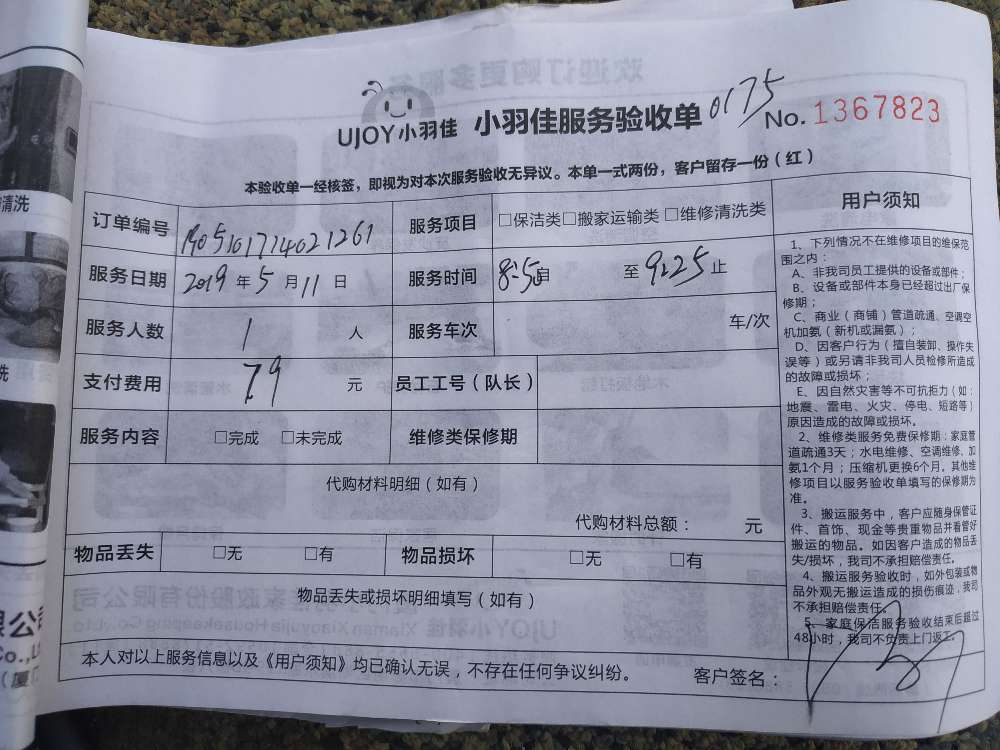 UJOY小羽佳 小羽佳服务验收单 0175 No. 1367823
本验收单一经核签，即视为对本次服务验收无异议。本单一式两份，客户留存一份（红）
订单编号 1905101714021261 服务项目 □保洁类□搬家运输类□维修清洗类
服务日期 2019年5月11日 服务时间 8:50自 至9:25止
服务人数 1 人 服务车次 车/次
支付费用 79 元 员工工号（队长）
服务内容 □完成 □未完成 维修类保修期
代购材料明细（如有）
代购材料总额： 元
物品丢失 □无 □有 物品损坏 □无 □有
物品丢失或损坏明细填写（如有）
本人对以上服务信息以及《用户须知》均已确认无误，不存在任何争议纠纷。 客户签名：
用户须知
1、下列情况不在维修项目的维保范
围之内：
A、非我司员工提供的设备或部件；
B、设备或部件本身已经超过出厂保
修期；
C、商业（商铺）管道疏通、空调空
机加氨（新机或漏氨）；
D、因客户行为（擅自装卸、操作失
误等）或另请非我司人员检修所造成
的故障或损坏；
E、因自然灾害等不可抗拒力（如：
地震、雷电、火灾、停电、短路等）
原因造成的故障或损坏。
2、维修类服务免费保修期：家庭管
道疏通3天；水电维修、空调维修、加
氨1个月；压缩机更换6个月。其他维
修项目以服务验收单填写的保修期为
准。
3、搬运服务中，客户应随身保管证
件、首饰、现金等贵重物品并看管好
搬运的物品。如因客户造成的物品丢
失/损坏，我司不承担赔偿责任。
4、搬运服务验收时，如外包装或物
品外观无搬运造成的损伤痕迹，我司
不承担赔偿责任。
5、家庭保洁服务验收结束后超过
48小时，我司不负责上门返工。
清洗
洗
限公司
Co.,L
（厦门